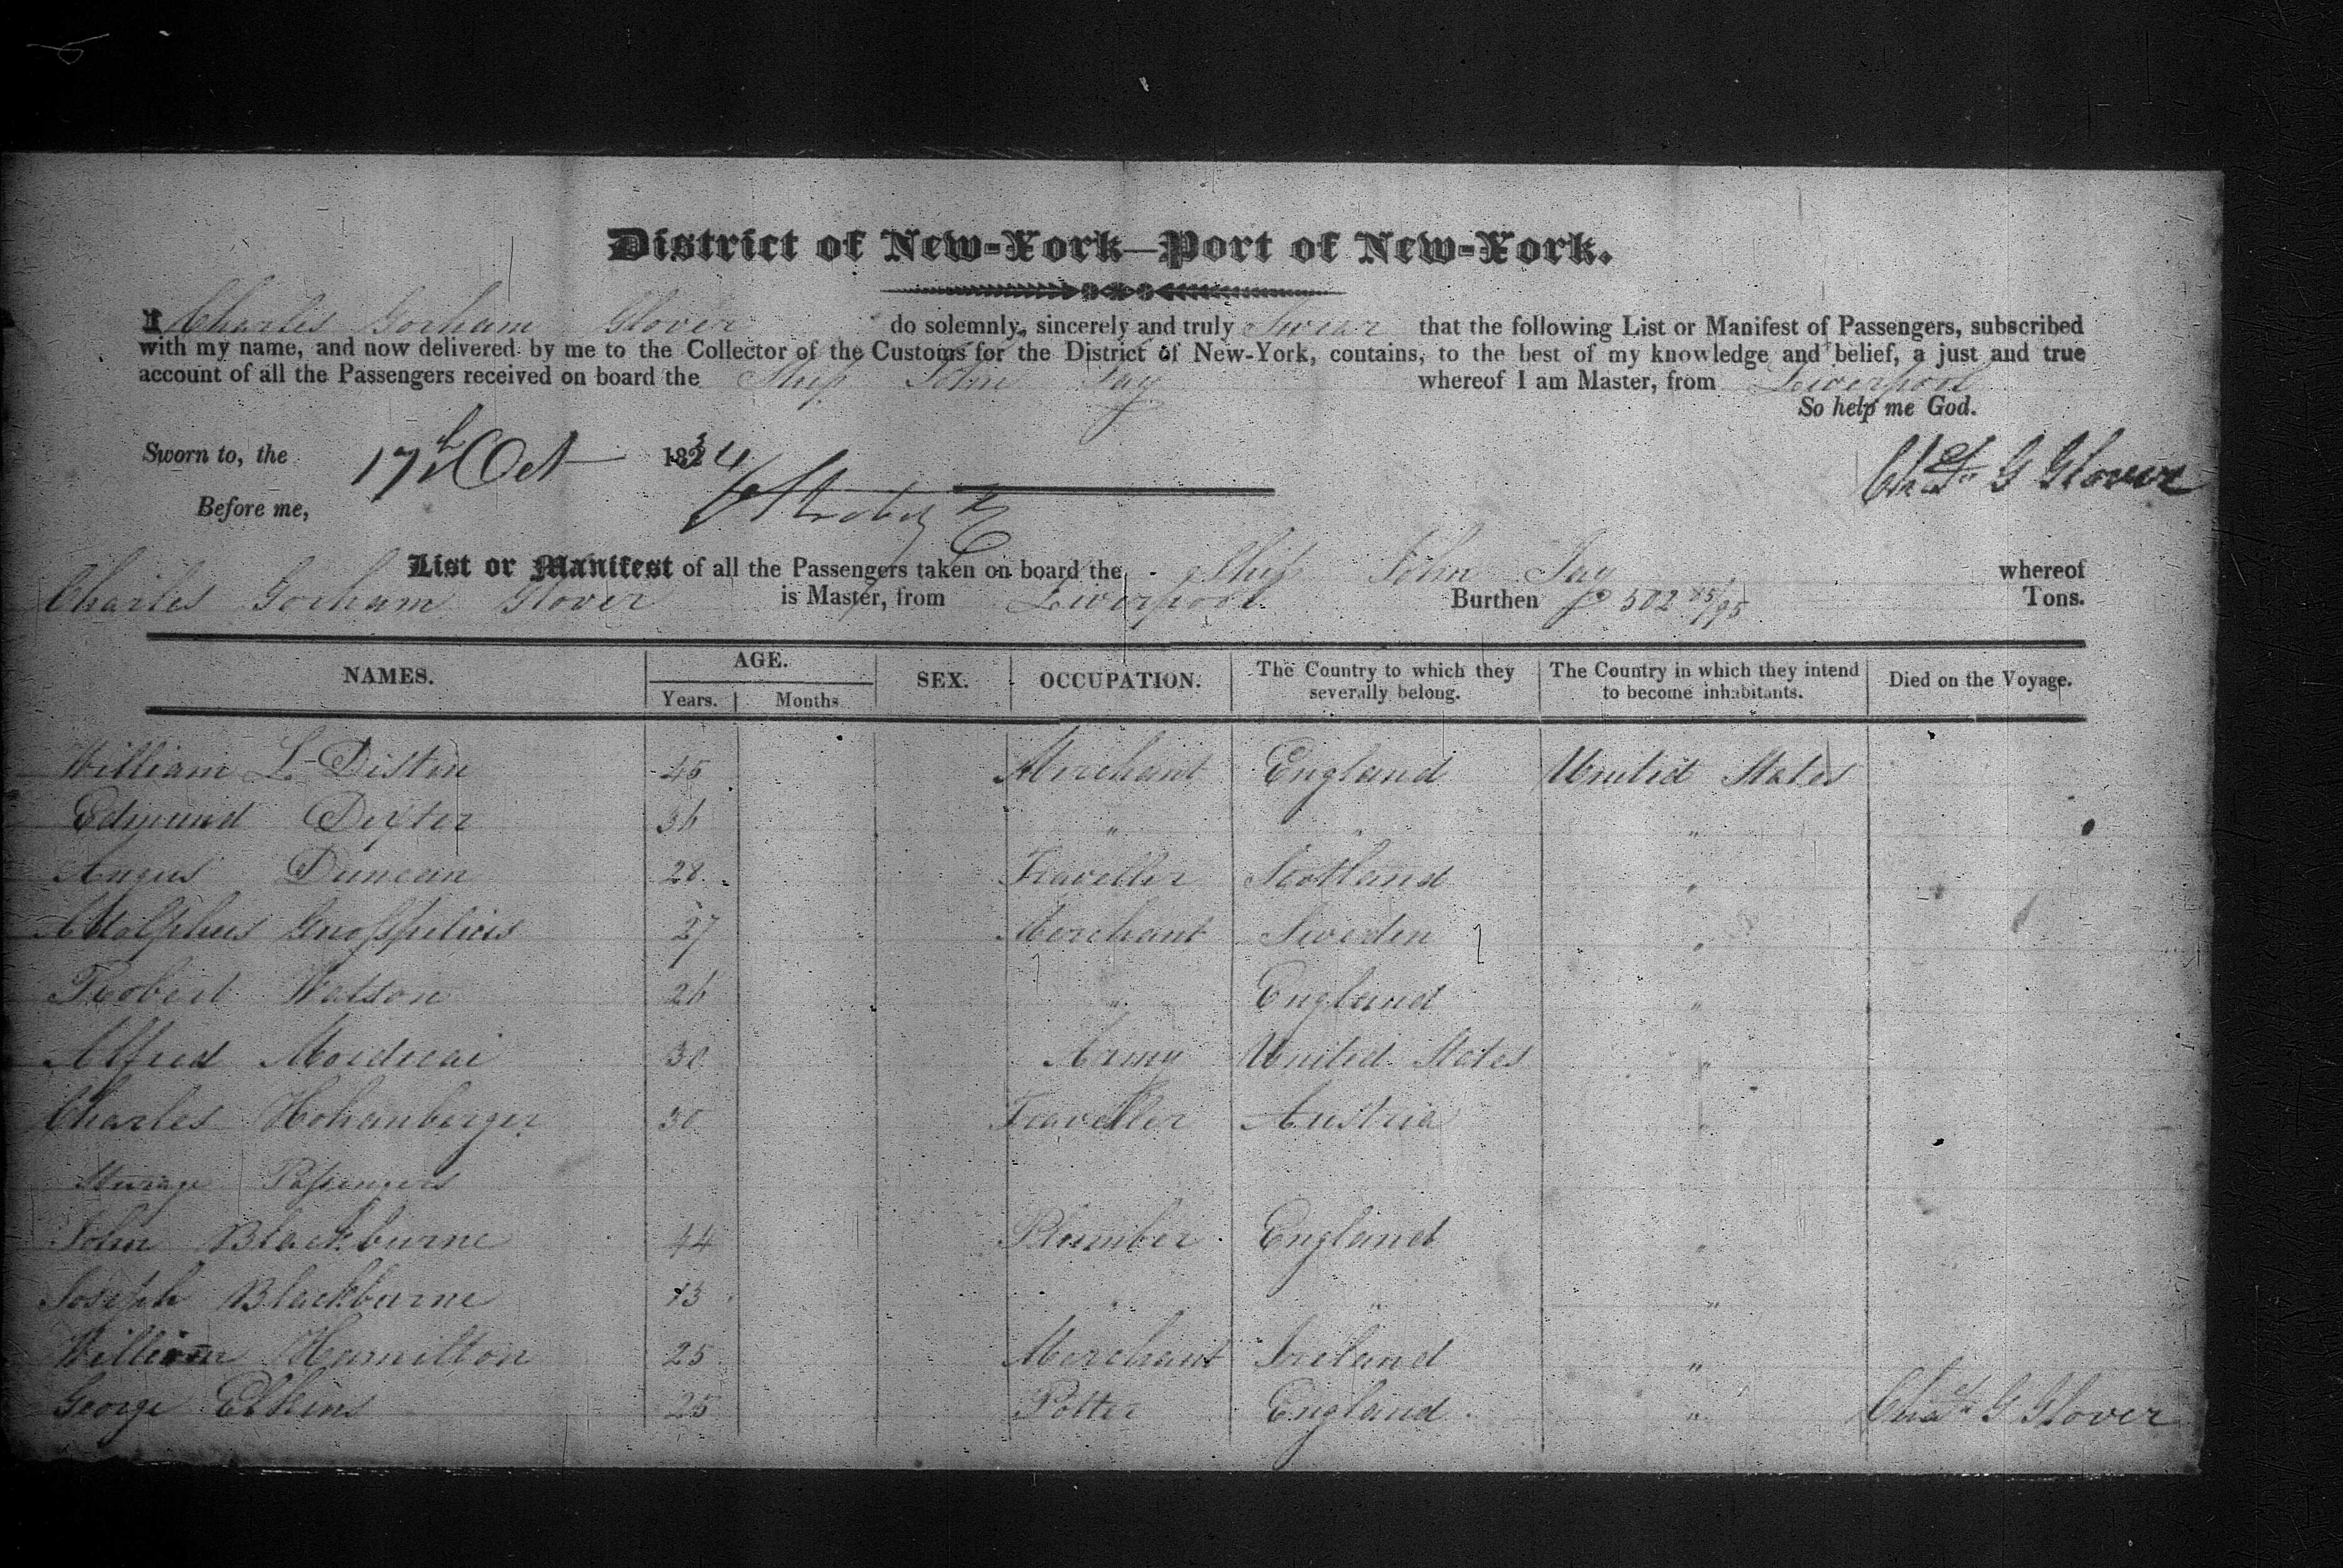 District of New-York—Port of New-York.
I Charles Gorham Glover do solemnly, sincerely and truly Swear that the following List or Manifest of Passengers, subscribed
with my name, and now delivered by me to the Collector of the Customs for the District of New-York, contains, to the best of my knowledge and belief, a just and true
account of all the Passengers received on board the Ship John Jay whereof I am Master, from Liverpool
So help me God.
Sworn to, the 17th Oct 1834
Chas G Glover
Before me,
List or Manifest of all the Passengers taken on board the Ship John Jay whereof
Charles Gorham Glover is Master, from Liverpool Burthen 502 85/95 Tons.
NAMES. AGE. SEX. OCCUPATION. The Country to which they severally belong. The Country in which they intend to become inhabitants. Died on the Voyage.
Years. Months
William L Distin 45 Merchant England United States
Edmund Dexter 36 " " "
Angus Duncan 28 Traveller Scotland "
Adolphus Gnosspelius 27 Merchant Sweden "
Robert Watson 26 " England "
Alfred Mordecai 30 Army United States "
Charles Hohanberger 30 Traveller Austria "
Steerage Passengers
John Blackburne 44 Plumber England "
Joseph Blackburne 13 " " "
William Hamilton 25 Merchant Ireland "
George Elkins 25 Potter England "
Chas G Glover